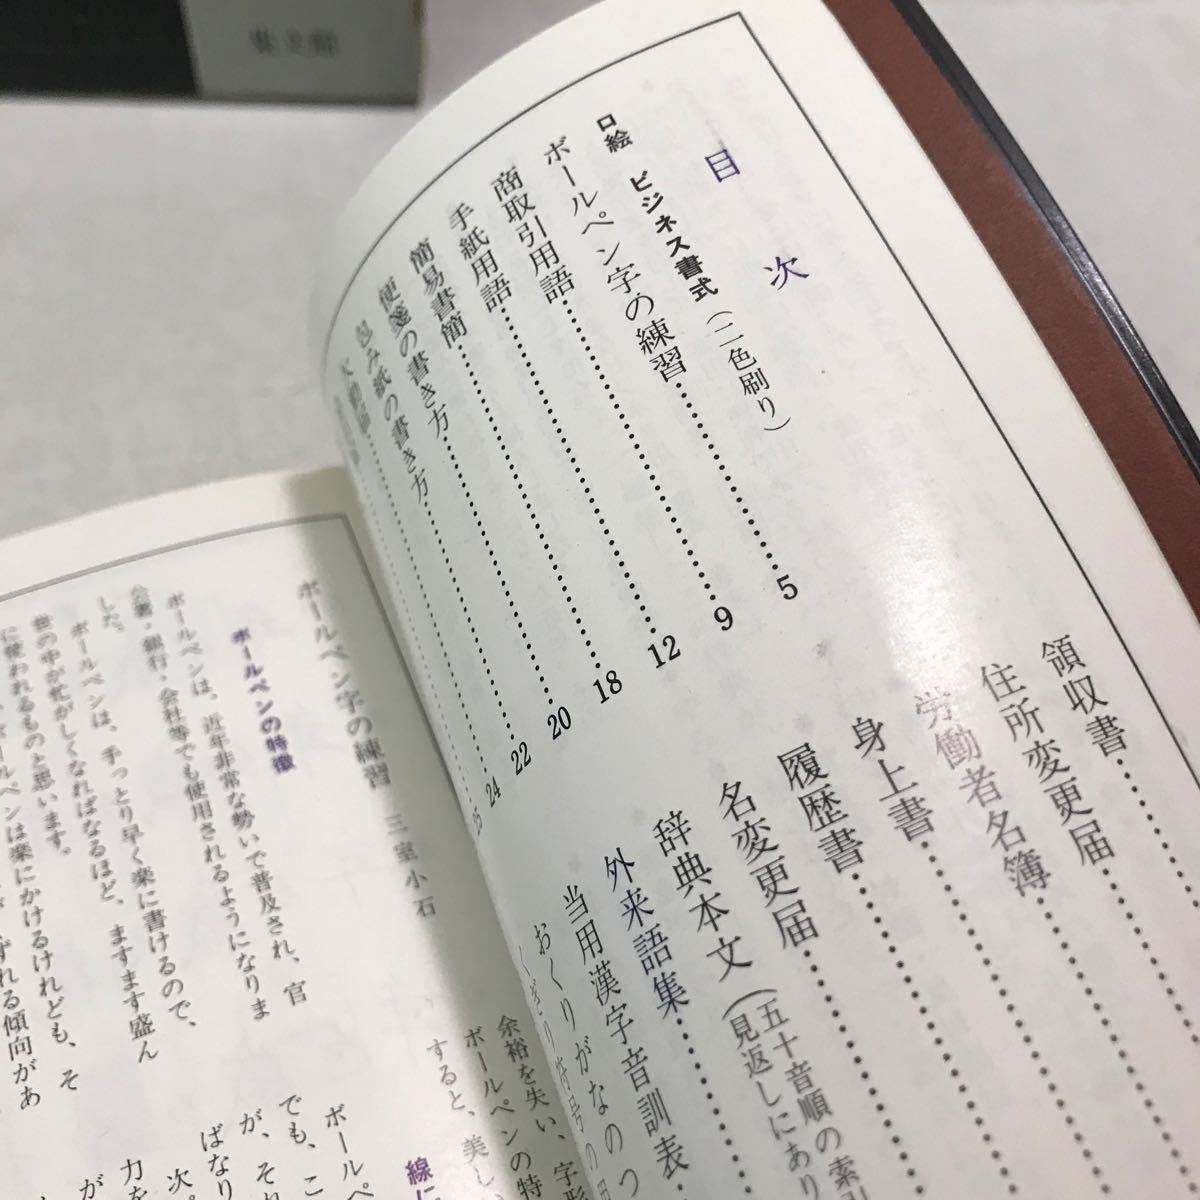 目次
口絵 ビジネス書式(二色刷り)
ボールペン字の練習……5
商取引用語……9
手紙用語……12
簡易書簡……18
便箋の書き方……20
包み紙の書き方……22
24
25
領収書……
住所変更届……
労働者名簿……
身上書……
履歴書……
名変更届……
辞典本文(五十音順の索引
(見返しにあり
外来語集……
当用漢字音訓表
おくりがなのつ
くぎり符号の
ボールペン字の練習 三室小石
ボールペンの特徴
ボールペンは、近年非常な勢いで普及され、官
公署・銀行・会社等でも使用されるようになりま
した。
ボールペンは、手っとり早く楽に書けるので、
世の中が忙がしくなればなるほど、ますます盛ん
に使われるものと思います。
ボールペンは楽にかけるけれども、そ
ずれる傾向があ
余裕を失い、字形
ボールペンの特
すると、美し
線に
ボールペ
でも、こ
が、それ
ばなり
次
力を
が